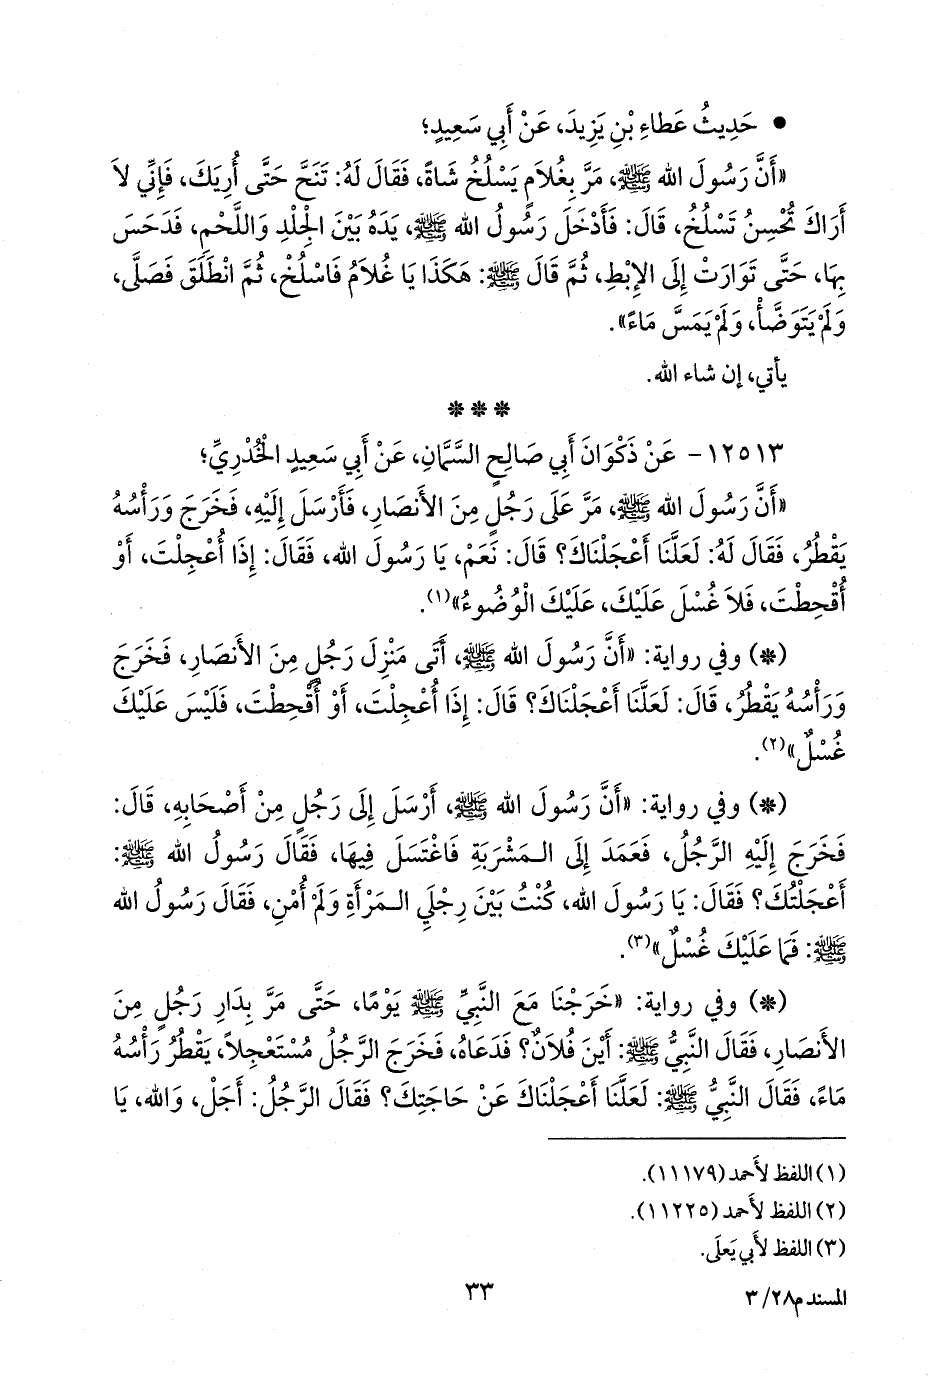 ● حَدِيثُ عَطَاءِ بْنِ يَزِيدَ، عَنْ أَبِي سَعِيدٍ؛
«أَنَّ رَسُولَ الله ﷺ، مَرَّ بِغُلَامٍ يَسْلُخُ شَاةً، فَقَالَ لَهُ: تَنَحَّ حَتَّى أُرِيَكَ، فَإِنِّي لاَ
أَرَاكَ تُحْسِنُ تَسْلُخُ، قَالَ: فَأَدْخَلَ رَسُولُ الله ﷺ، يَدَهُ بَيْنَ الْجِلْدِ وَاللَّحْمِ، فَدَحَسَ
بِهَا، حَتَّى تَوَارَتْ إِلَى الإِبْطِ، ثُمَّ قَالَ ﷺ: هَكَذَا يَا غُلاَمُ فَاسْلُخْ، ثُمَّ انْطَلَقَ فَصَلَّى،
وَلَمْ يَتَوَضَّأْ، وَلَمْ يَمَسَّ مَاءً».
يأتي، إن شاء الله.
***
١٢٥١٣- عَنْ ذَكْوَانَ أَبِي صَالِحٍ السَّمَّانِ، عَنْ أَبِي سَعِيدٍ الْخُدْرِيِّ؛
«أَنَّ رَسُولَ الله ﷺ، مَرَّ عَلَى رَجُلٍ مِنَ الأَنصَارِ، فَأَرْسَلَ إِلَيْهِ، فَخَرَجَ وَرَأْسُهُ
يَقْطُرُ، فَقَالَ لَهُ: لَعَلَّنَا أَعْجَلْنَاكَ؟ قَالَ: نَعَمْ، يَا رَسُولَ الله، فَقَالَ: إِذَا أُعْجِلْتَ، أَوْ
أُقْحِطْتَ، فَلاَ غُسْلَ عَلَيْكَ، عَلَيْكَ الْوُضُوءُ»(١).
(*) وفي رواية: «أَنَّ رَسُولَ الله ﷺ، أَتَى مَنْزِلَ رَجُلٍ مِنَ الأَنصَارِ، فَخَرَجَ
وَرَأْسُهُ يَقْطُرُ، قَالَ: لَعَلَّنَا أَعْجَلْنَاكَ؟ قَالَ: إِذَا أُعْجِلْتَ، أَوْ أُقْحِطْتَ، فَلَيْسَ عَلَيْكَ
غُسْلٌ»(٢).
(*) وفي رواية: «أَنَّ رَسُولَ الله ﷺ، أَرْسَلَ إِلَى رَجُلٍ مِنْ أَصْحَابِهِ، قَالَ:
فَخَرَجَ إِلَيْهِ الرَّجُلُ، فَعَمَدَ إِلَى الْمَشْرَبَةِ فَاغْتَسَلَ فِيهَا، فَقَالَ رَسُولُ الله ﷺ:
أَعْجَلْتُكَ؟ فَقَالَ: يَا رَسُولَ الله، كُنْتُ بَيْنَ رِجْلَيِ الْمَرْأَةِ وَلَمْ أُمْنِ، فَقَالَ رَسُولُ الله
ﷺ: فَمَا عَلَيْكَ غُسْلٌ»(٣).
(*) وفي رواية: «خَرَجْنَا مَعَ النَّبِيِّ ﷺ يَوْمًا، حَتَّى مَرَّ بِدَارِ رَجُلٍ مِنَ
الأَنصَارِ، فَقَالَ النَّبِيُّ ﷺ: أَيْنَ فُلاَنٌ؟ فَدَعَاهُ، فَخَرَجَ الرَّجُلُ مُسْتَعْجِلاً، يَقْطُرُ رَأْسُهُ
مَاءً، فَقَالَ النَّبِيُّ ﷺ: لَعَلَّنَا أَعْجَلْنَاكَ عَنْ حَاجَتِكَ؟ فَقَالَ الرَّجُلُ: أَجَلْ، وَالله، يَا
(١) اللفظ لأَحمد (١١١٧٩).
(٢) اللفظ لأَحمد (١١٢٢٥).
(٣) اللفظ لأَبي يَعلَى.
٣٣
المسند م٣/٢٨